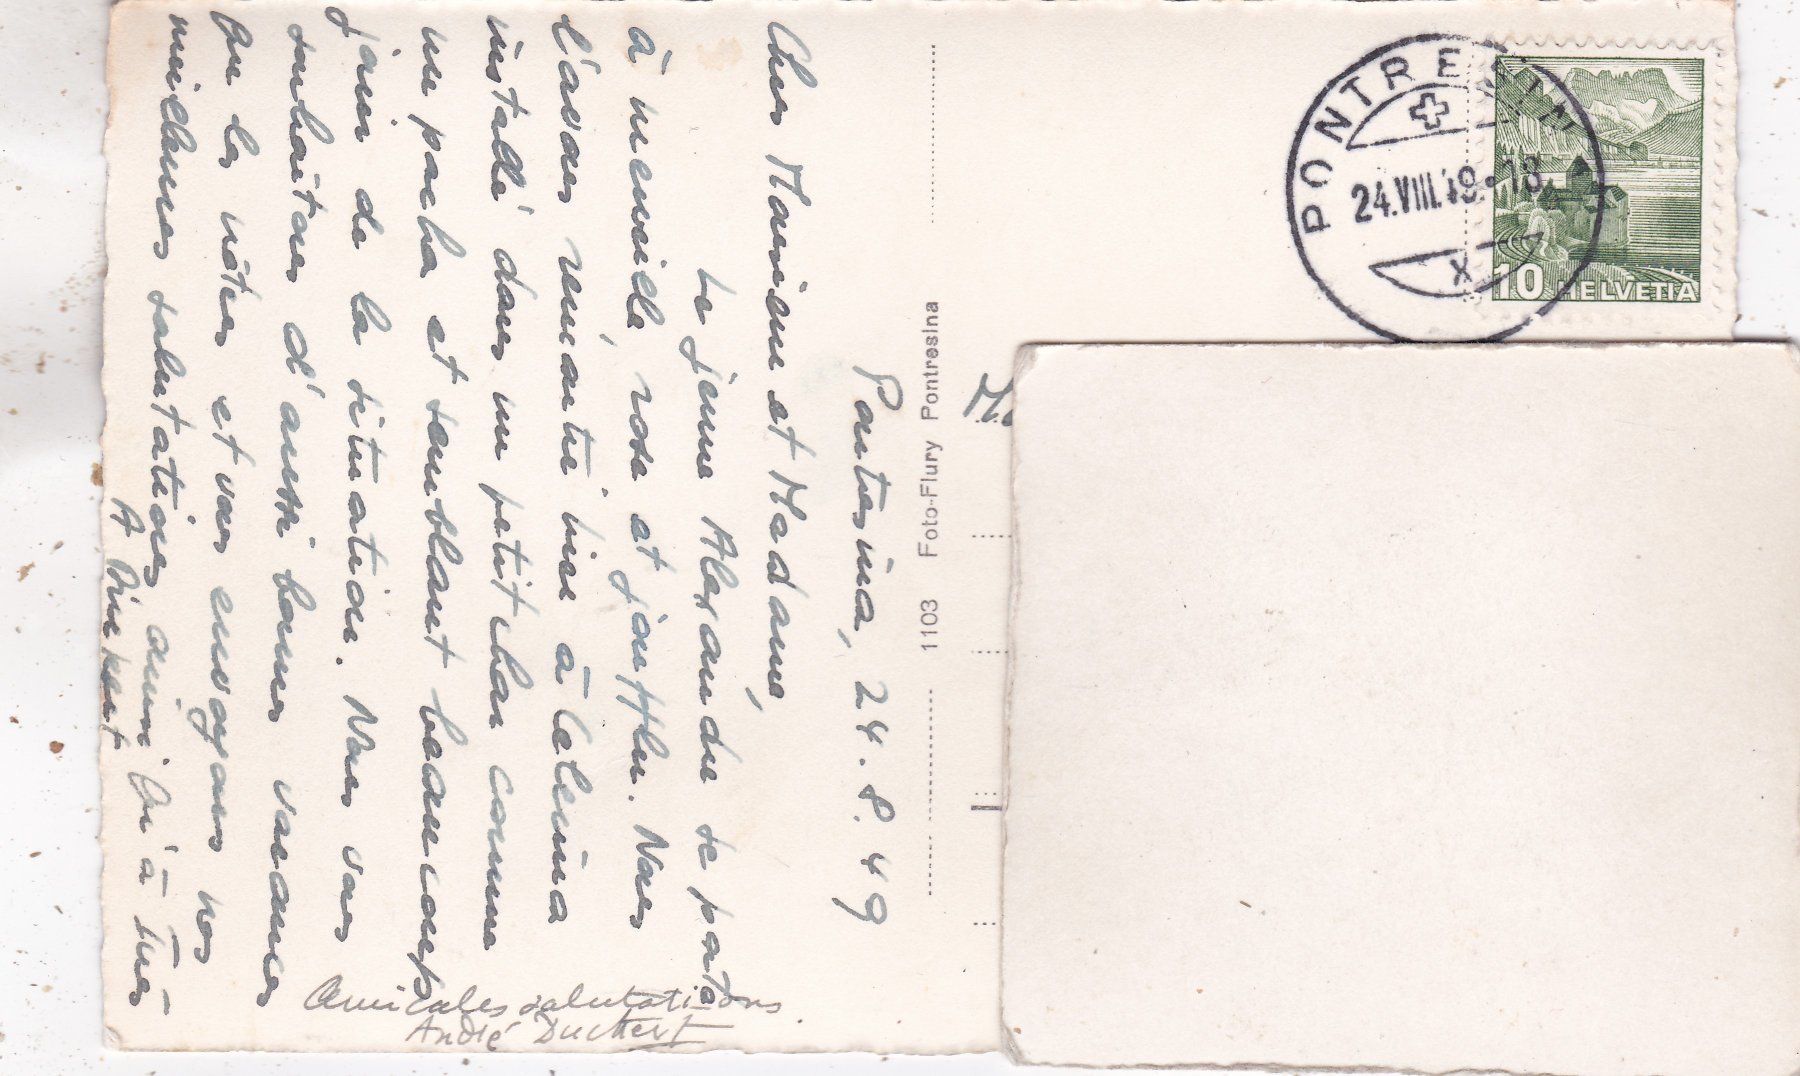 Pontresina, 24.8.49
Cher Monsieur et Madame,
Le jeune Alexandre se porte
à merveille, rose et joufflu. Nous
l'avons remontré hier à Celerina
installé dans un petit char comme
un pacha et semblant beaucoup
jouir de la situation. Nous vous
souhaitons d'aussi bonnes vacances
que les nôtres et vous envoyons nos
meilleures salutations ainsi qu'à
A
Amicales salutations.
André Duckert
1103 Foto-Flury Pontresina
PONTRESINA
24.VIII.49.-18
X
10 HELVETIA